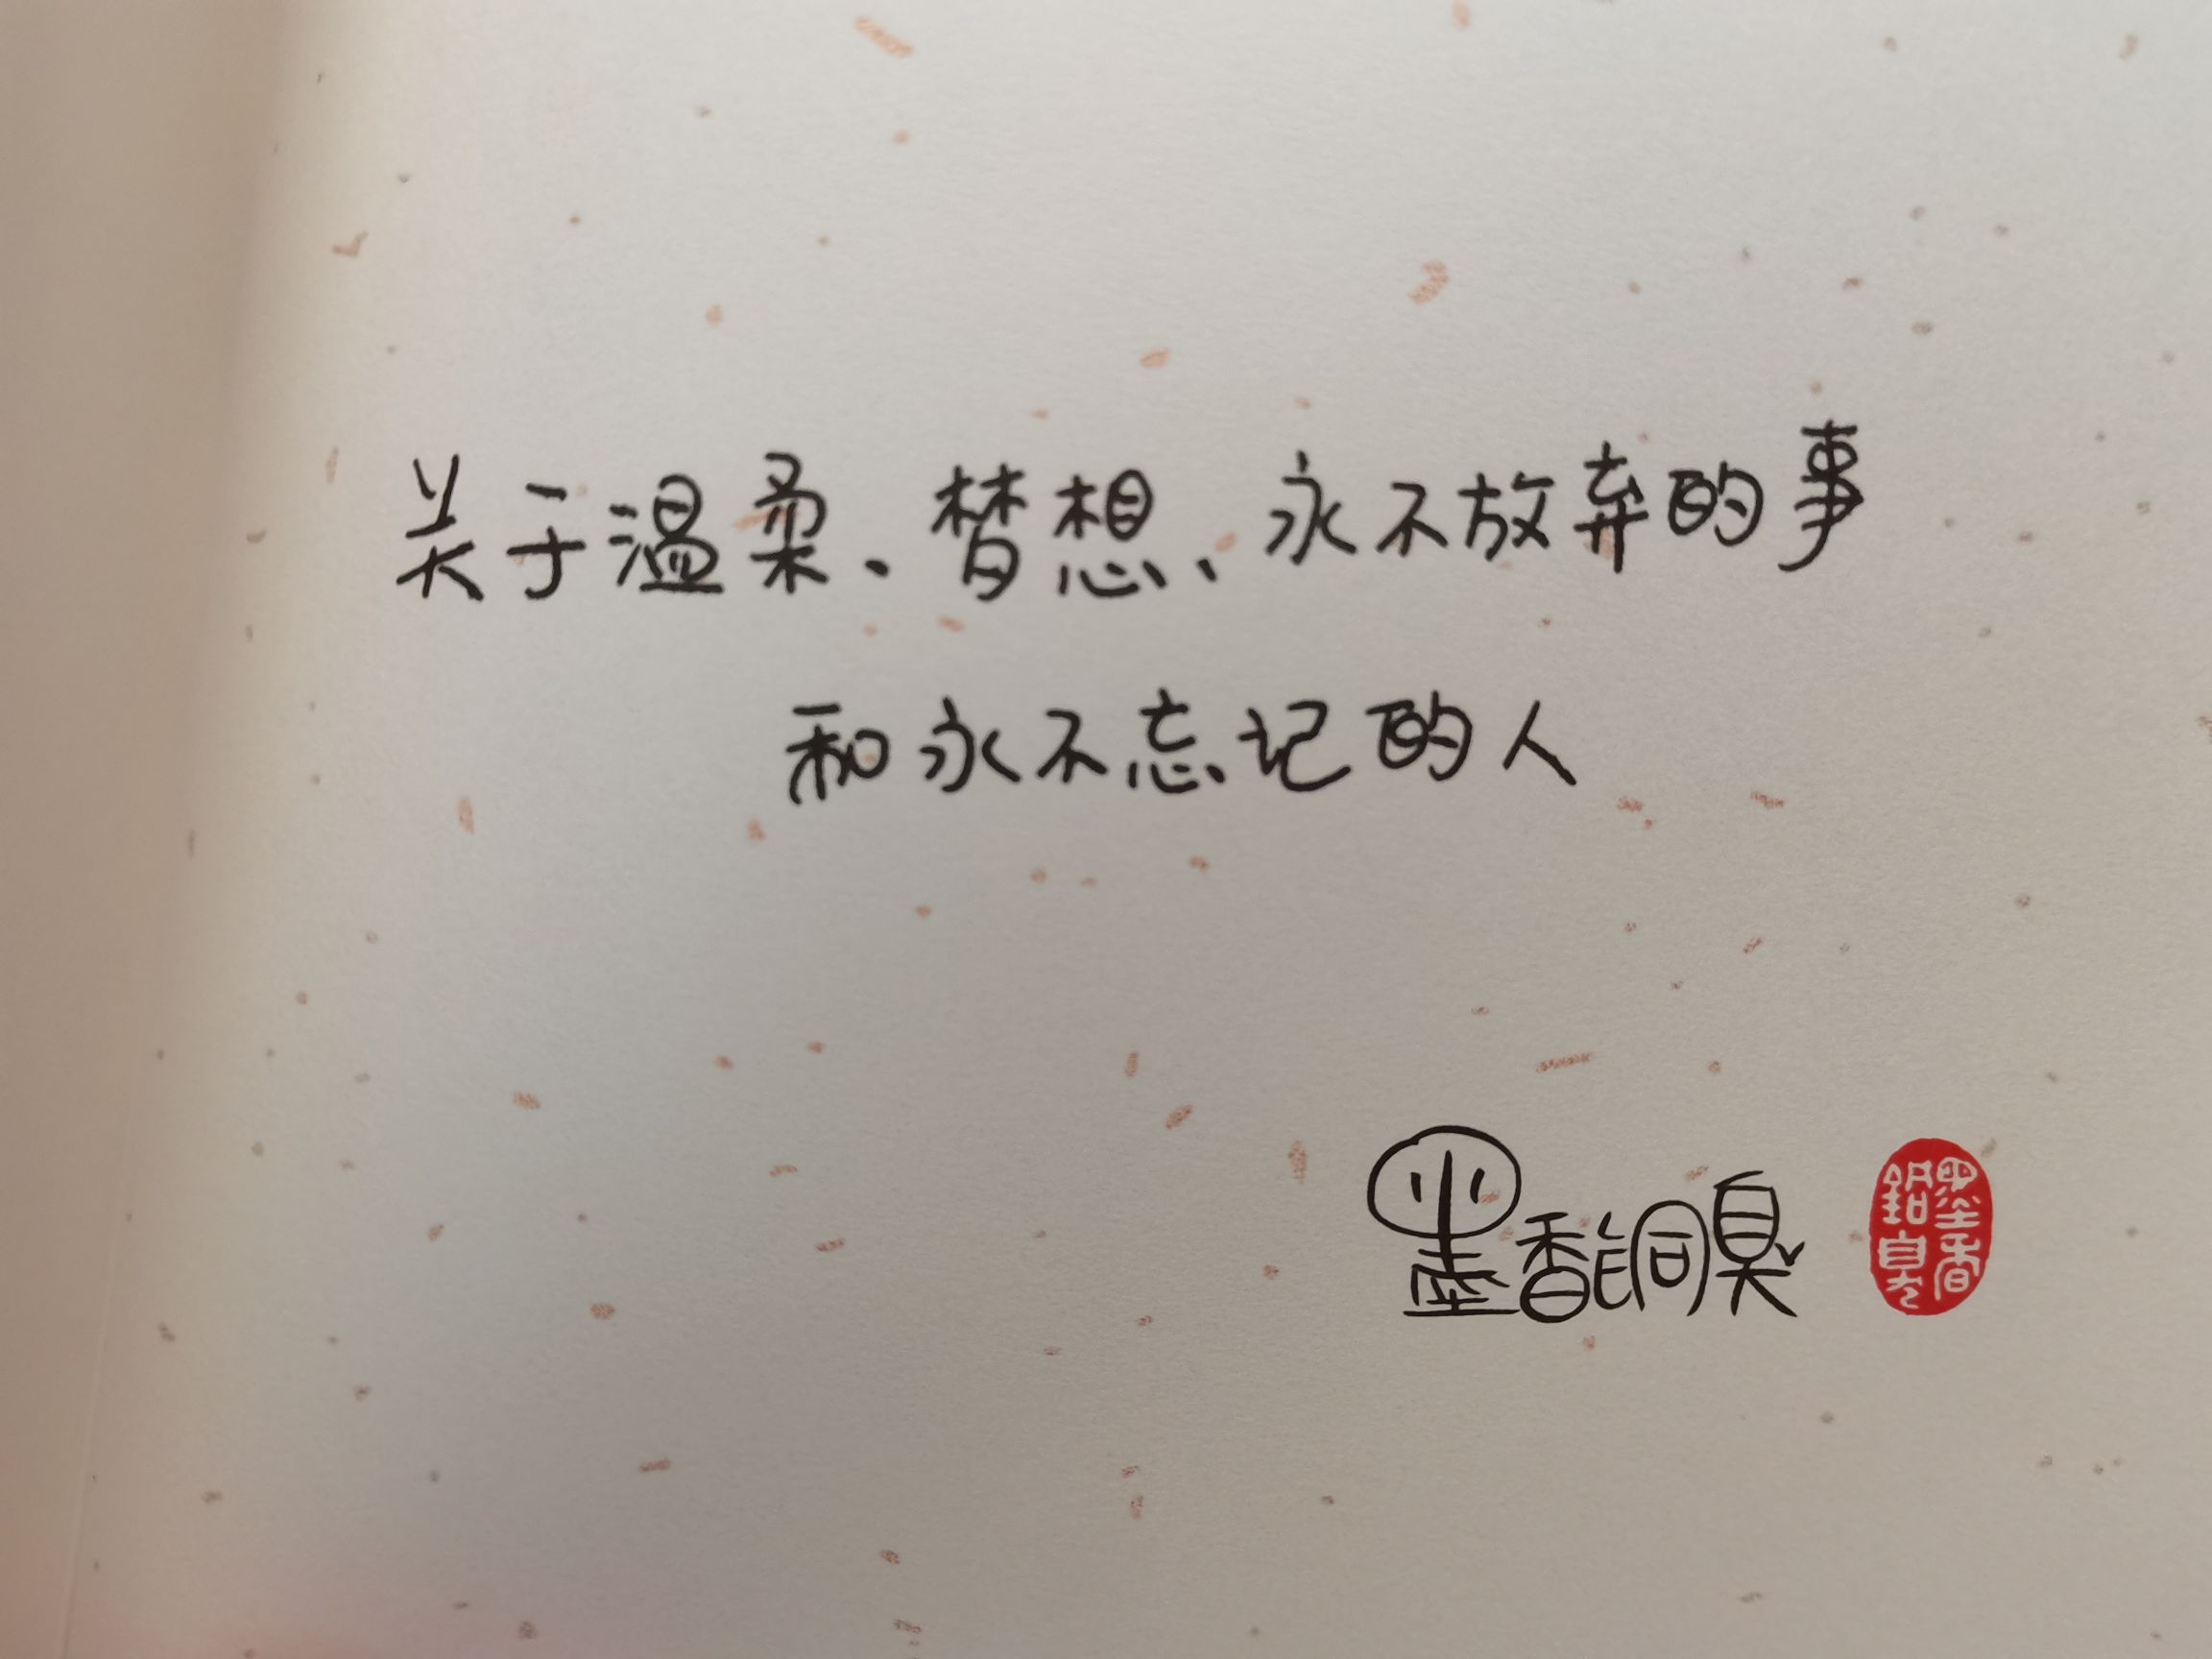 关于温柔、梦想、永不放弃的事
和永不忘记的人
墨香铜臭
墨香
铜臭